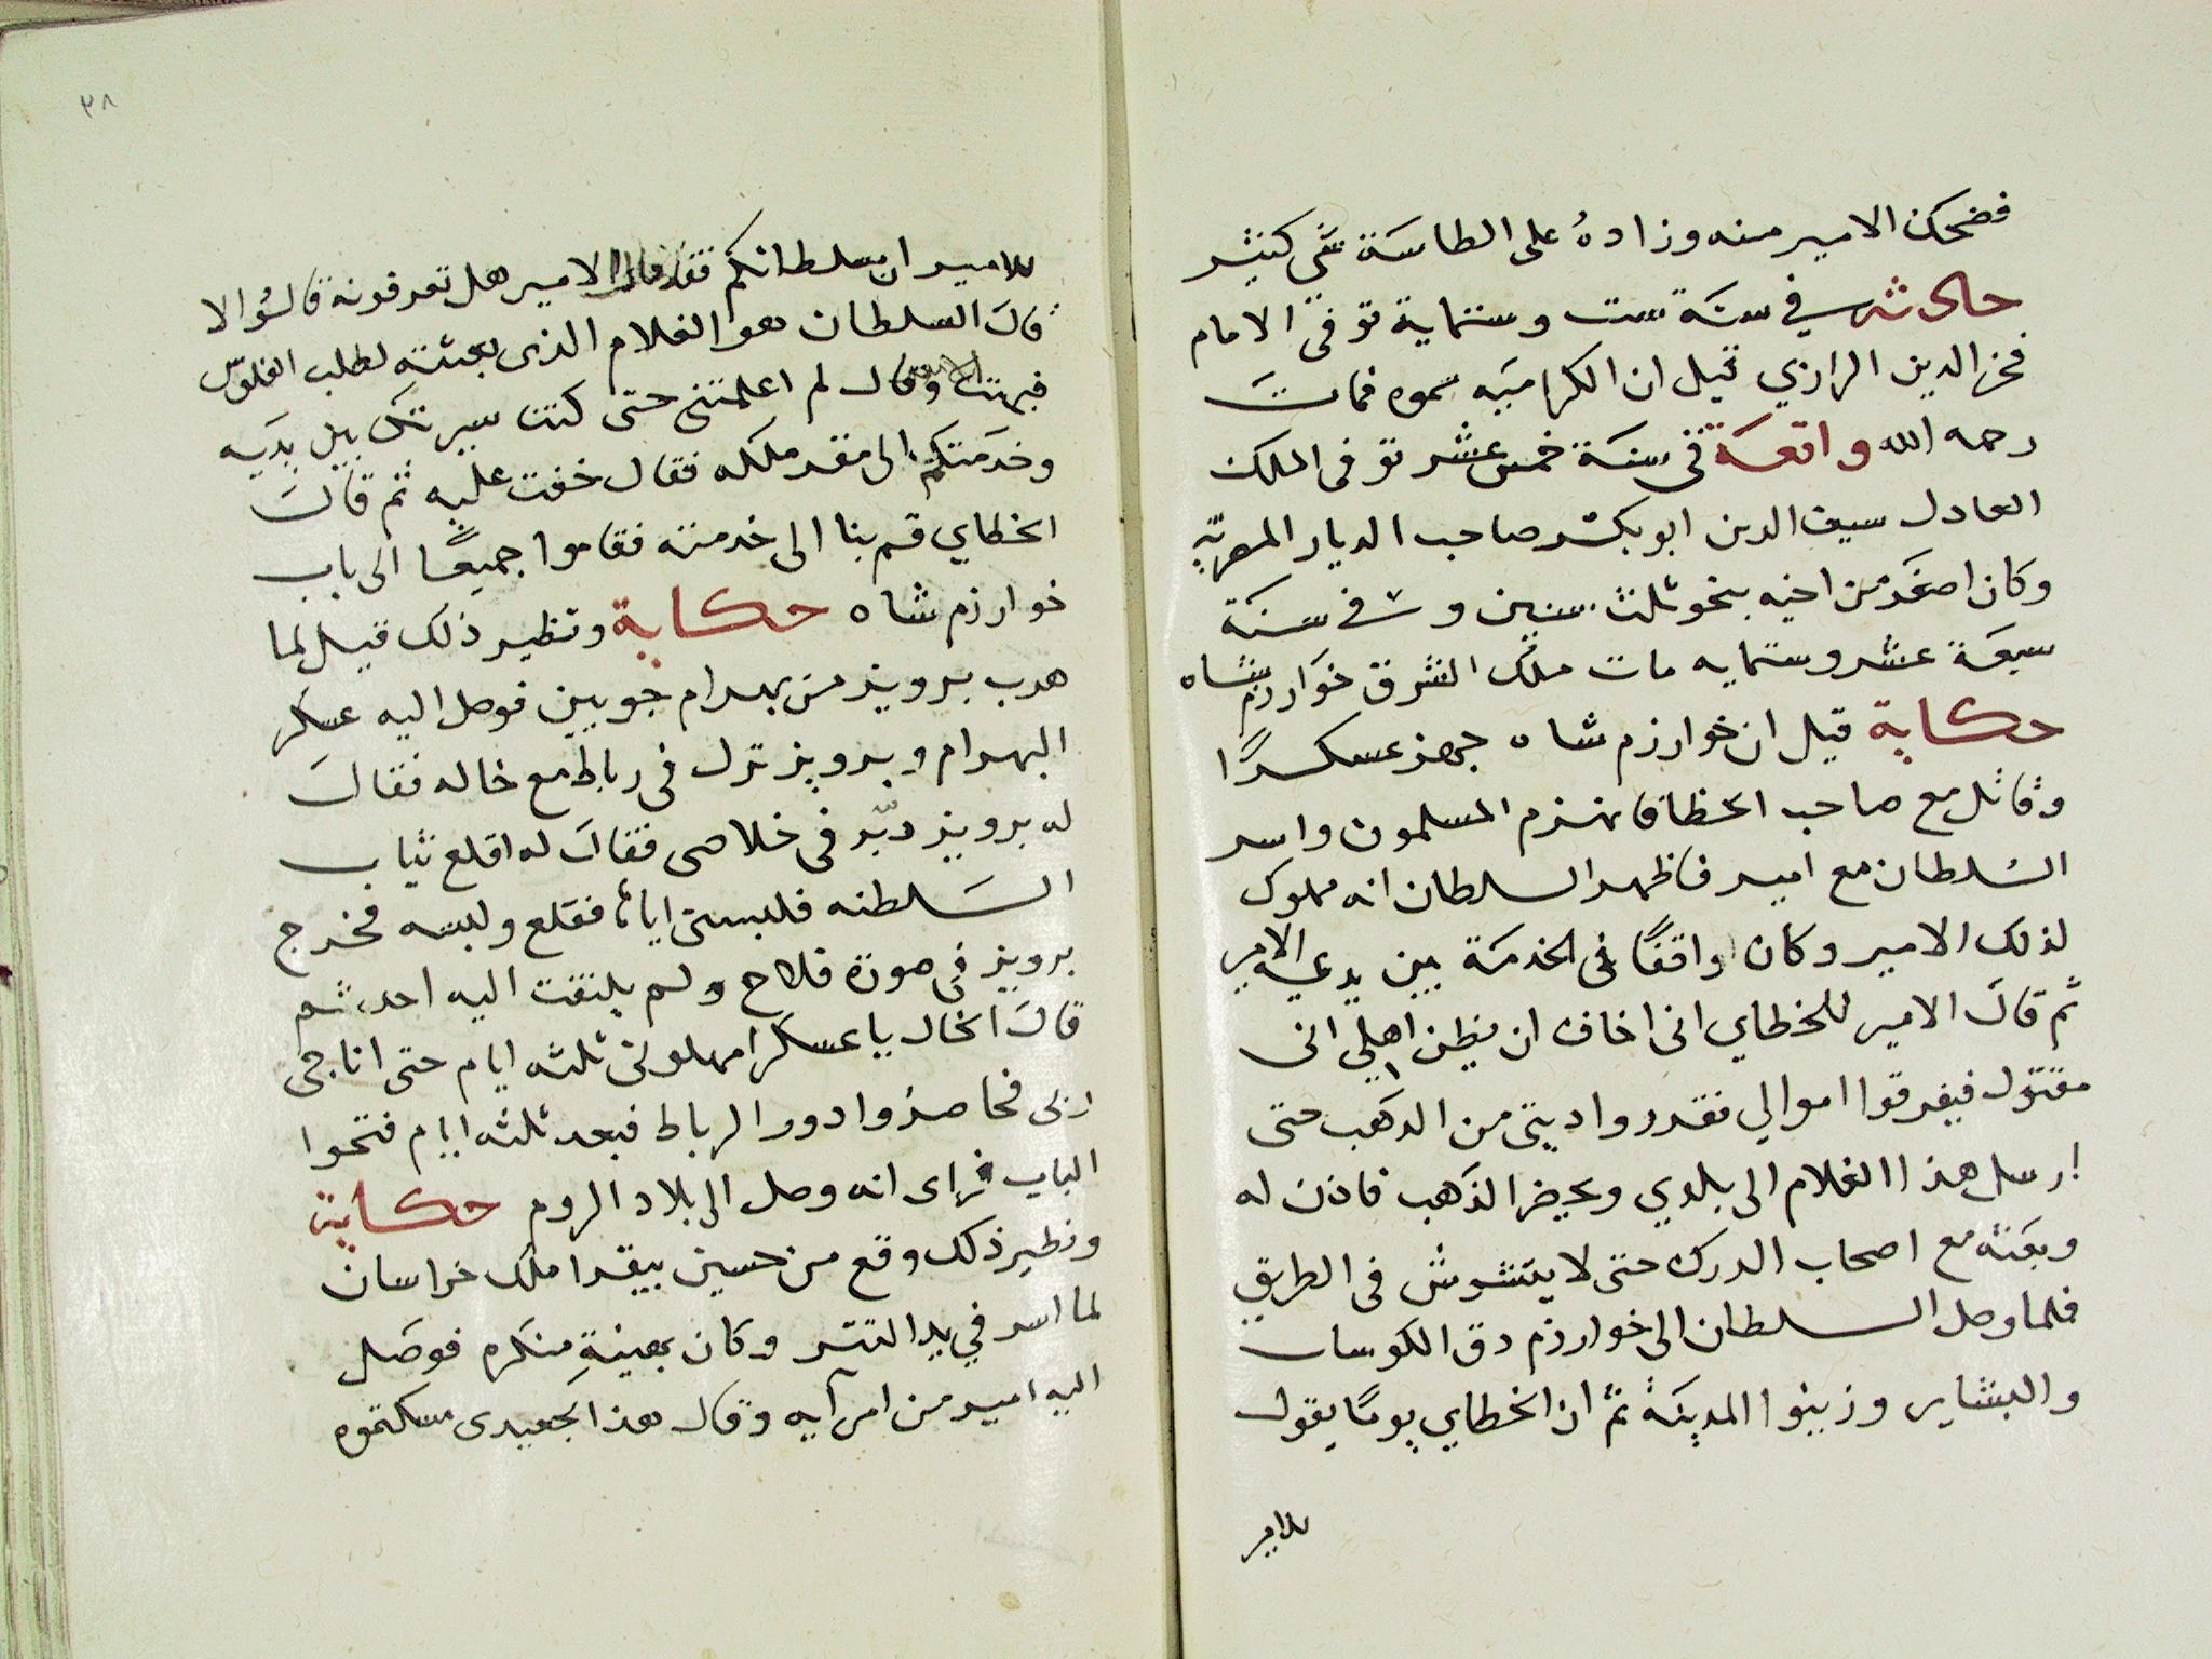 فضحك الامير منه وزاده على الطاسة شى كثير
حادثه في سنة ست وستماية توفى الامام
فخر الدين الرازي قيل ان الكراميه سموه فمات
رحمه الله واقعة فى سنة خمس عشر توفى الملك
العادل سيف الدين ابو بكر صاحب الديار المصرية
وكان اصغر من اخيه بنحو ثلث سنين و فى سنة
سبعة عشر وستمايه مات ملك الشرق خوارزم شاه
حكاية قيل ان خوارزم شاه جهز عسكرًا
وقاتل مع صاحب الخطا فانهزم المسلمون واسر
السلطان مع امير فاظهر السلطان انه مملوك
لذلك الامير وكان واقفًا فى الخدمة بين يدى الامير
ثم قال الامير للخطاي انى اخاف ان يظن اهلي انى
مقتول فيفرقوا اموالي فقدروا ديتى من الذهب حتى
ارسل هذا الغلام الى بلدي ويحيضر الذهب فاذن له
وبعثه مع اصحاب الدرك حتى لا يتشوش فى الطريق
فلما وصل السلطان الى خوارزم دق الكوسات
والبشاير وزينوا المدينة ثم ان الخطاي يومًا يقول
للامير
٣٨
للامير ان سلطانكم فقد فقال الامير هل تعرفونه قالوا لا
قال السلطان هو الغلام الذى بعثته لطلب الفلوس
فبهت وقال لم اعلمتنى حتى كنت سيرتك بين يديه
وخدمتكم الى مقر ملكه فقال خفت عليه ثم قال
الخطاي قم بنا الى خدمته فقاموا جميعًا الى باب
خوارزم شاه حكاية ونظير ذلك قيل لما
هرب برويز من بهرام جوبين فوصل اليه عسكر
البهرام وبرويز نزل فى رباط مع خاله فقال
له برويز دبّر فى خلاصى فقال له اقلع ثياب
السلطنه فلبسنى اياها فقلع ولبسه فخرج
برويز فى صورة فلاح ولم يلتفت اليه احد ثم
قال الخال يا عسكر امهلونى ثلثه ايام حتى اناجى
ربى فحاصروا دور الرباط فبعد ثلثه ايام فتحوا
الباب فراى انه وصل الى بلاد الروم حكاية
ونظير ذلك وقع من حسين بيقرا ملك خراسان
لما اسر في يد التتر وكان بعينةٍ منكره فوصل
اليه امير من امرآيه وقال هذا الجعيدى مسكتموه